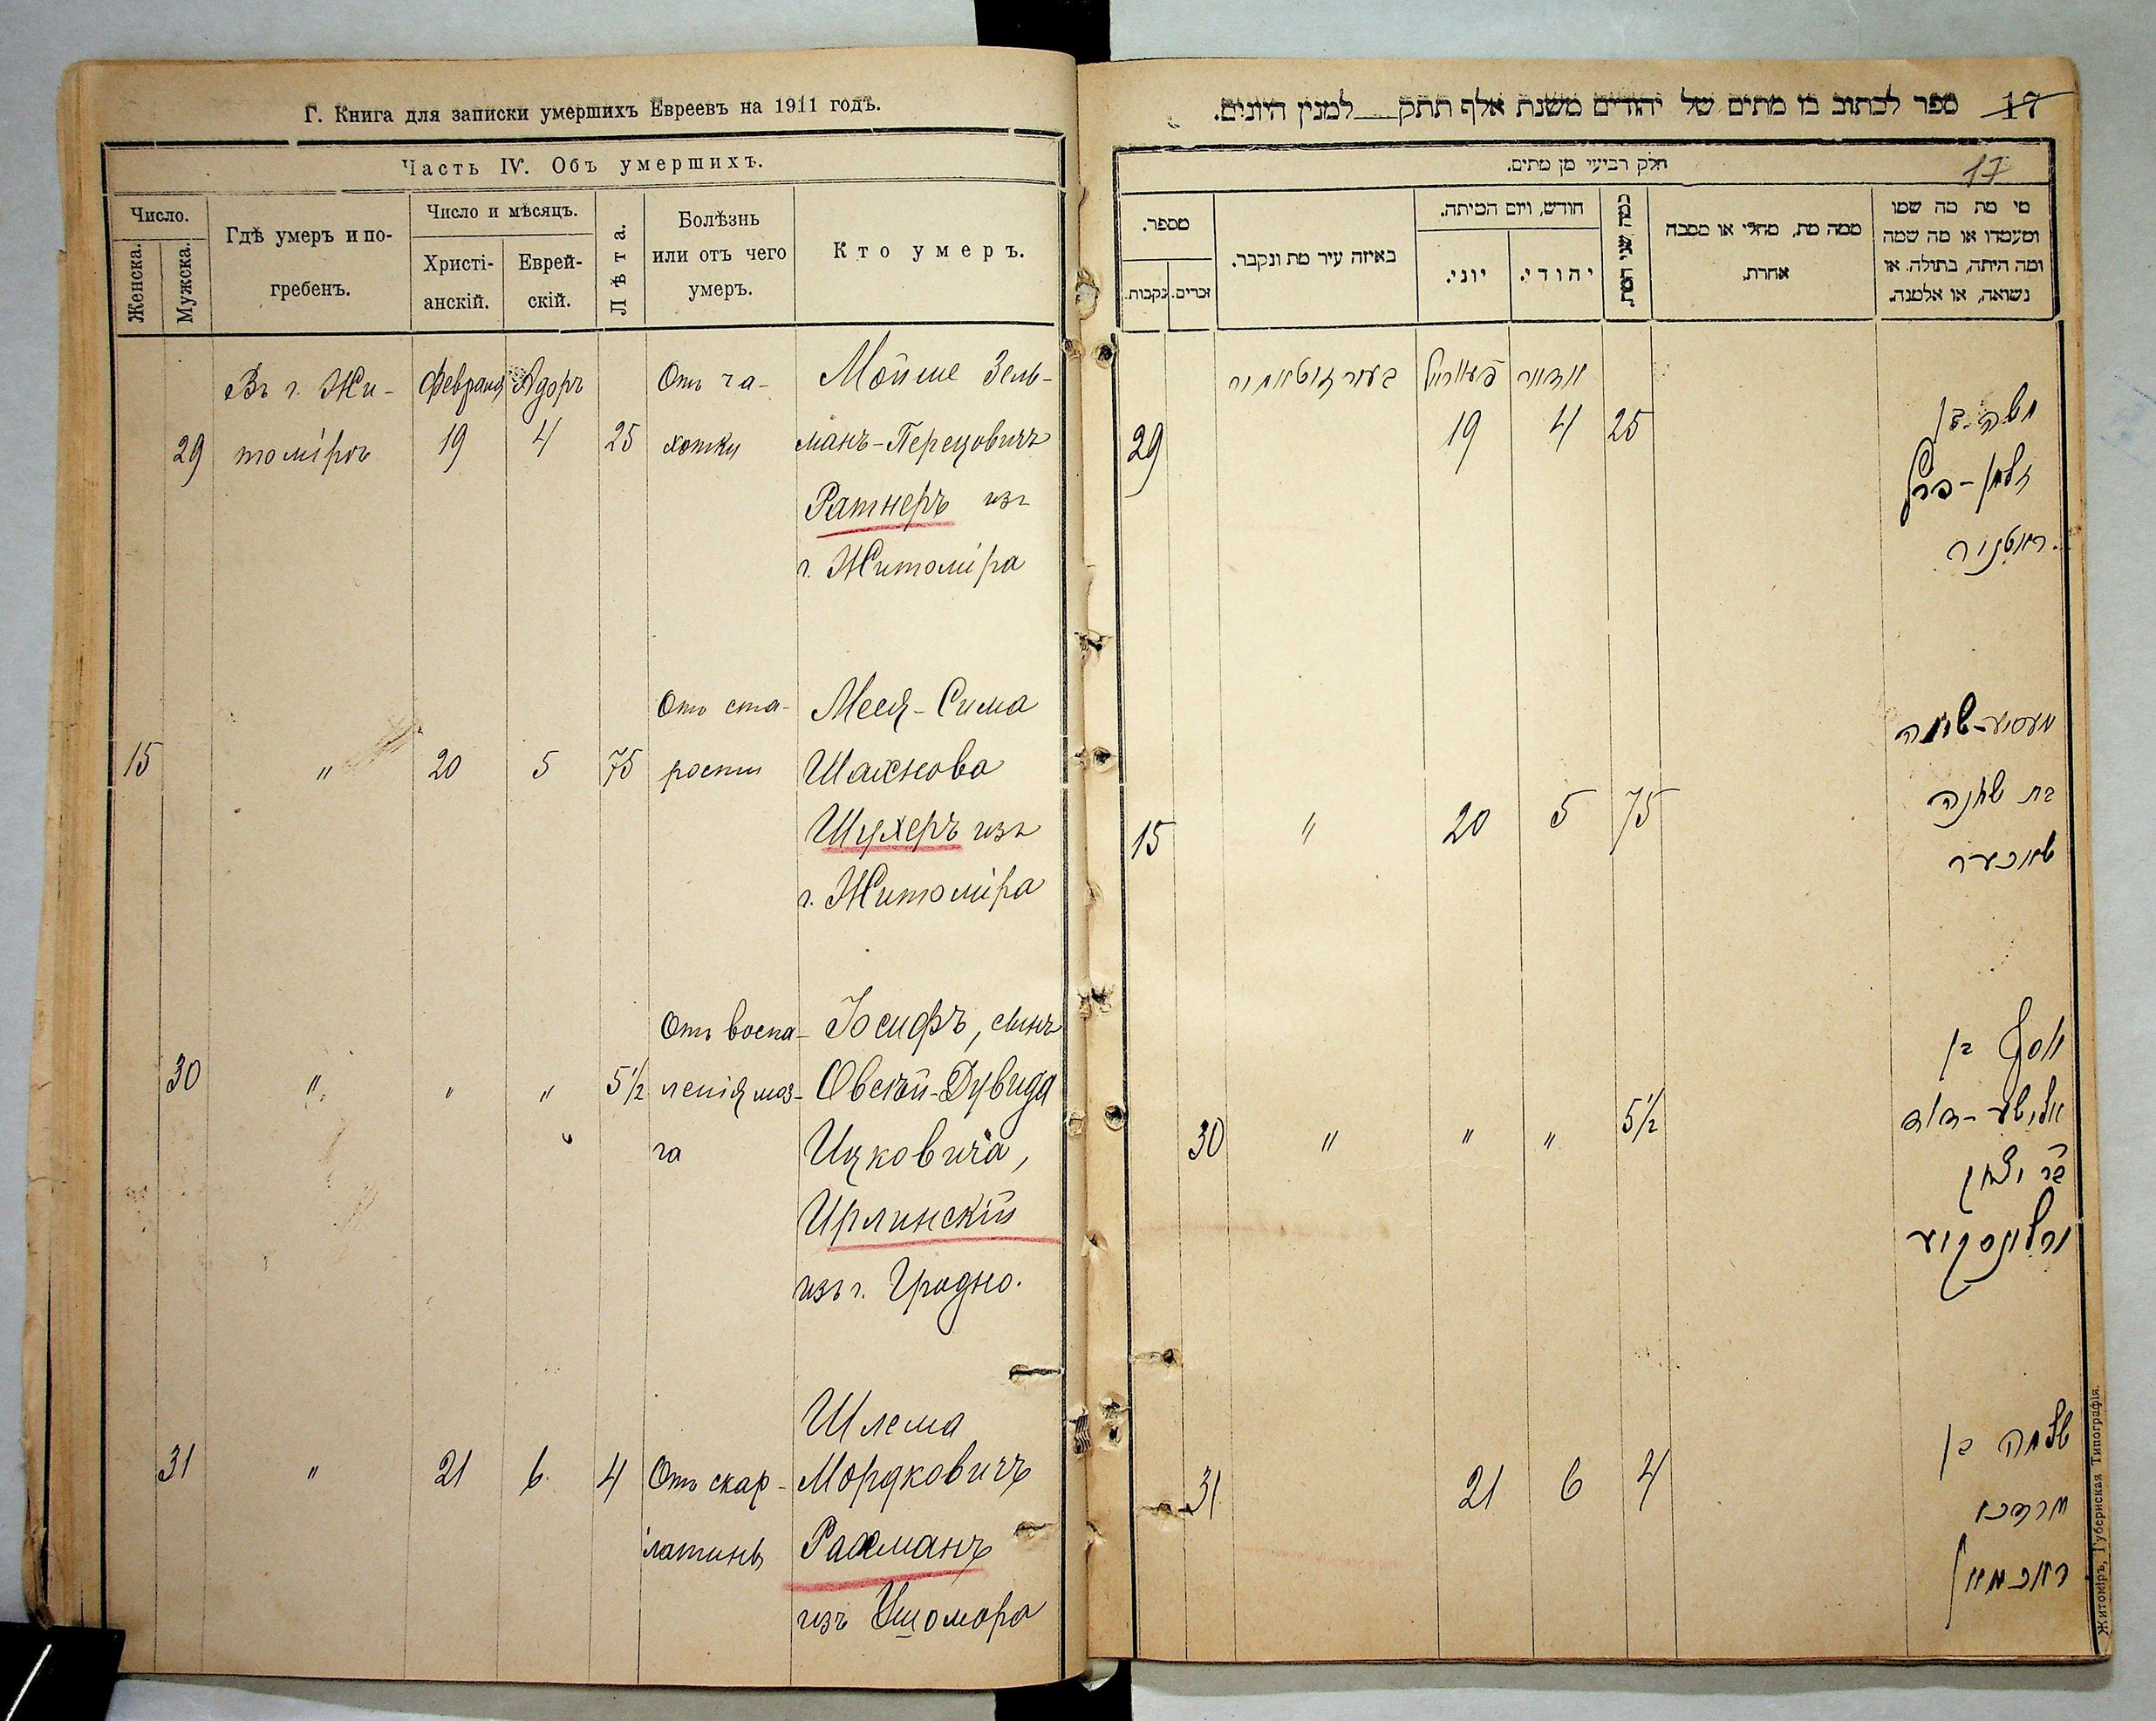 Г. Книга для записки умершихъ Евреевъ на 1911 годъ.
Часть IV. Объ умершихъ.
Число.
Женска.
Мужска.
Гдѣ умеръ и по-
гребенъ.
Число и мѣсяцъ.
Христі-
анскій.
Еврей-
скій.
Лѣта.
Болѣзнь
или отъ чего
умеръ.
Кто умеръ.
Въ г. Жи- Февраля Адоръ Отъ ча- Мойше Зель-
29 томірѣ 19 4 25 хотки манъ-Перецовичъ
Ратнеръ изъ
г. Житоміра
Отъ ста- Месся-Сима
15 " 20 5 75 рости Шахнова
Шухеръ изъ
г. Житоміра
Отъ воспа- Іосифъ, сынъ
30 " " " 5½ ленія моз- Овсѣй-Дувида
га Ицковича,
Ирлинскій
изъ г. Гродно.
Шлема
31 " 21 6 4 Отъ скар- Мордковичъ
латины Рахманъ
изъ Ушомора
17 ספר לכתוב בו מתים של יהודים משנת אלף תתק למנין היונים.
17
חלק רביעי מן מתים.
מי מת מה שמו
ומעמדו או מה שמה
ומה היתה, בתולה. או
נשואה, או אלמנה.
ממה מת, מחלי או מסבח
אחרת.
כמה שני המת.
חודש, ויום המיתה.
יהודי.
יוני.
באיזה עיר מת ונקבר.
מספר.
זכרים.
נקבות.
אדאר פעווראל בעיר זיטאמיר
משה בן
25 4 19 29
זלמן-פרץ
ראטנער
מעסיע-סימה
בת שחנה
75 5 20 " 15
שוכער
יוסף בן
אלישע-דוד
5½ " " " 30
בר יצחק
ירלינסקיע
שלמה בן
4 6 21 31
מרדכי
ראכמאן
Житоміръ, Губернская Типографія.